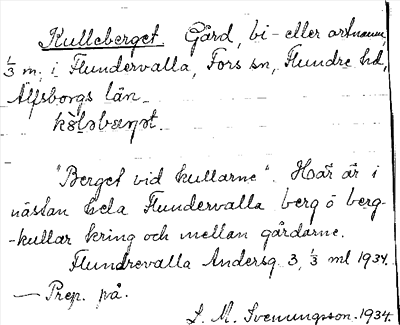 Kulleberget. Gård, bi- eller artnamn,
1/3 m. i Flundervalla, Fors sn, Flundre hd,
Älfsborgs län.
"Berget vid kullarne". Här är i
nästan hela Flundervalla berg ö berg-
-kullar kring och mellan gårdarne.
Flundrevalla Andersg. 3, 1/3 ml 1934.
— Prep. på.
L. M. Svenungsson. 1934.